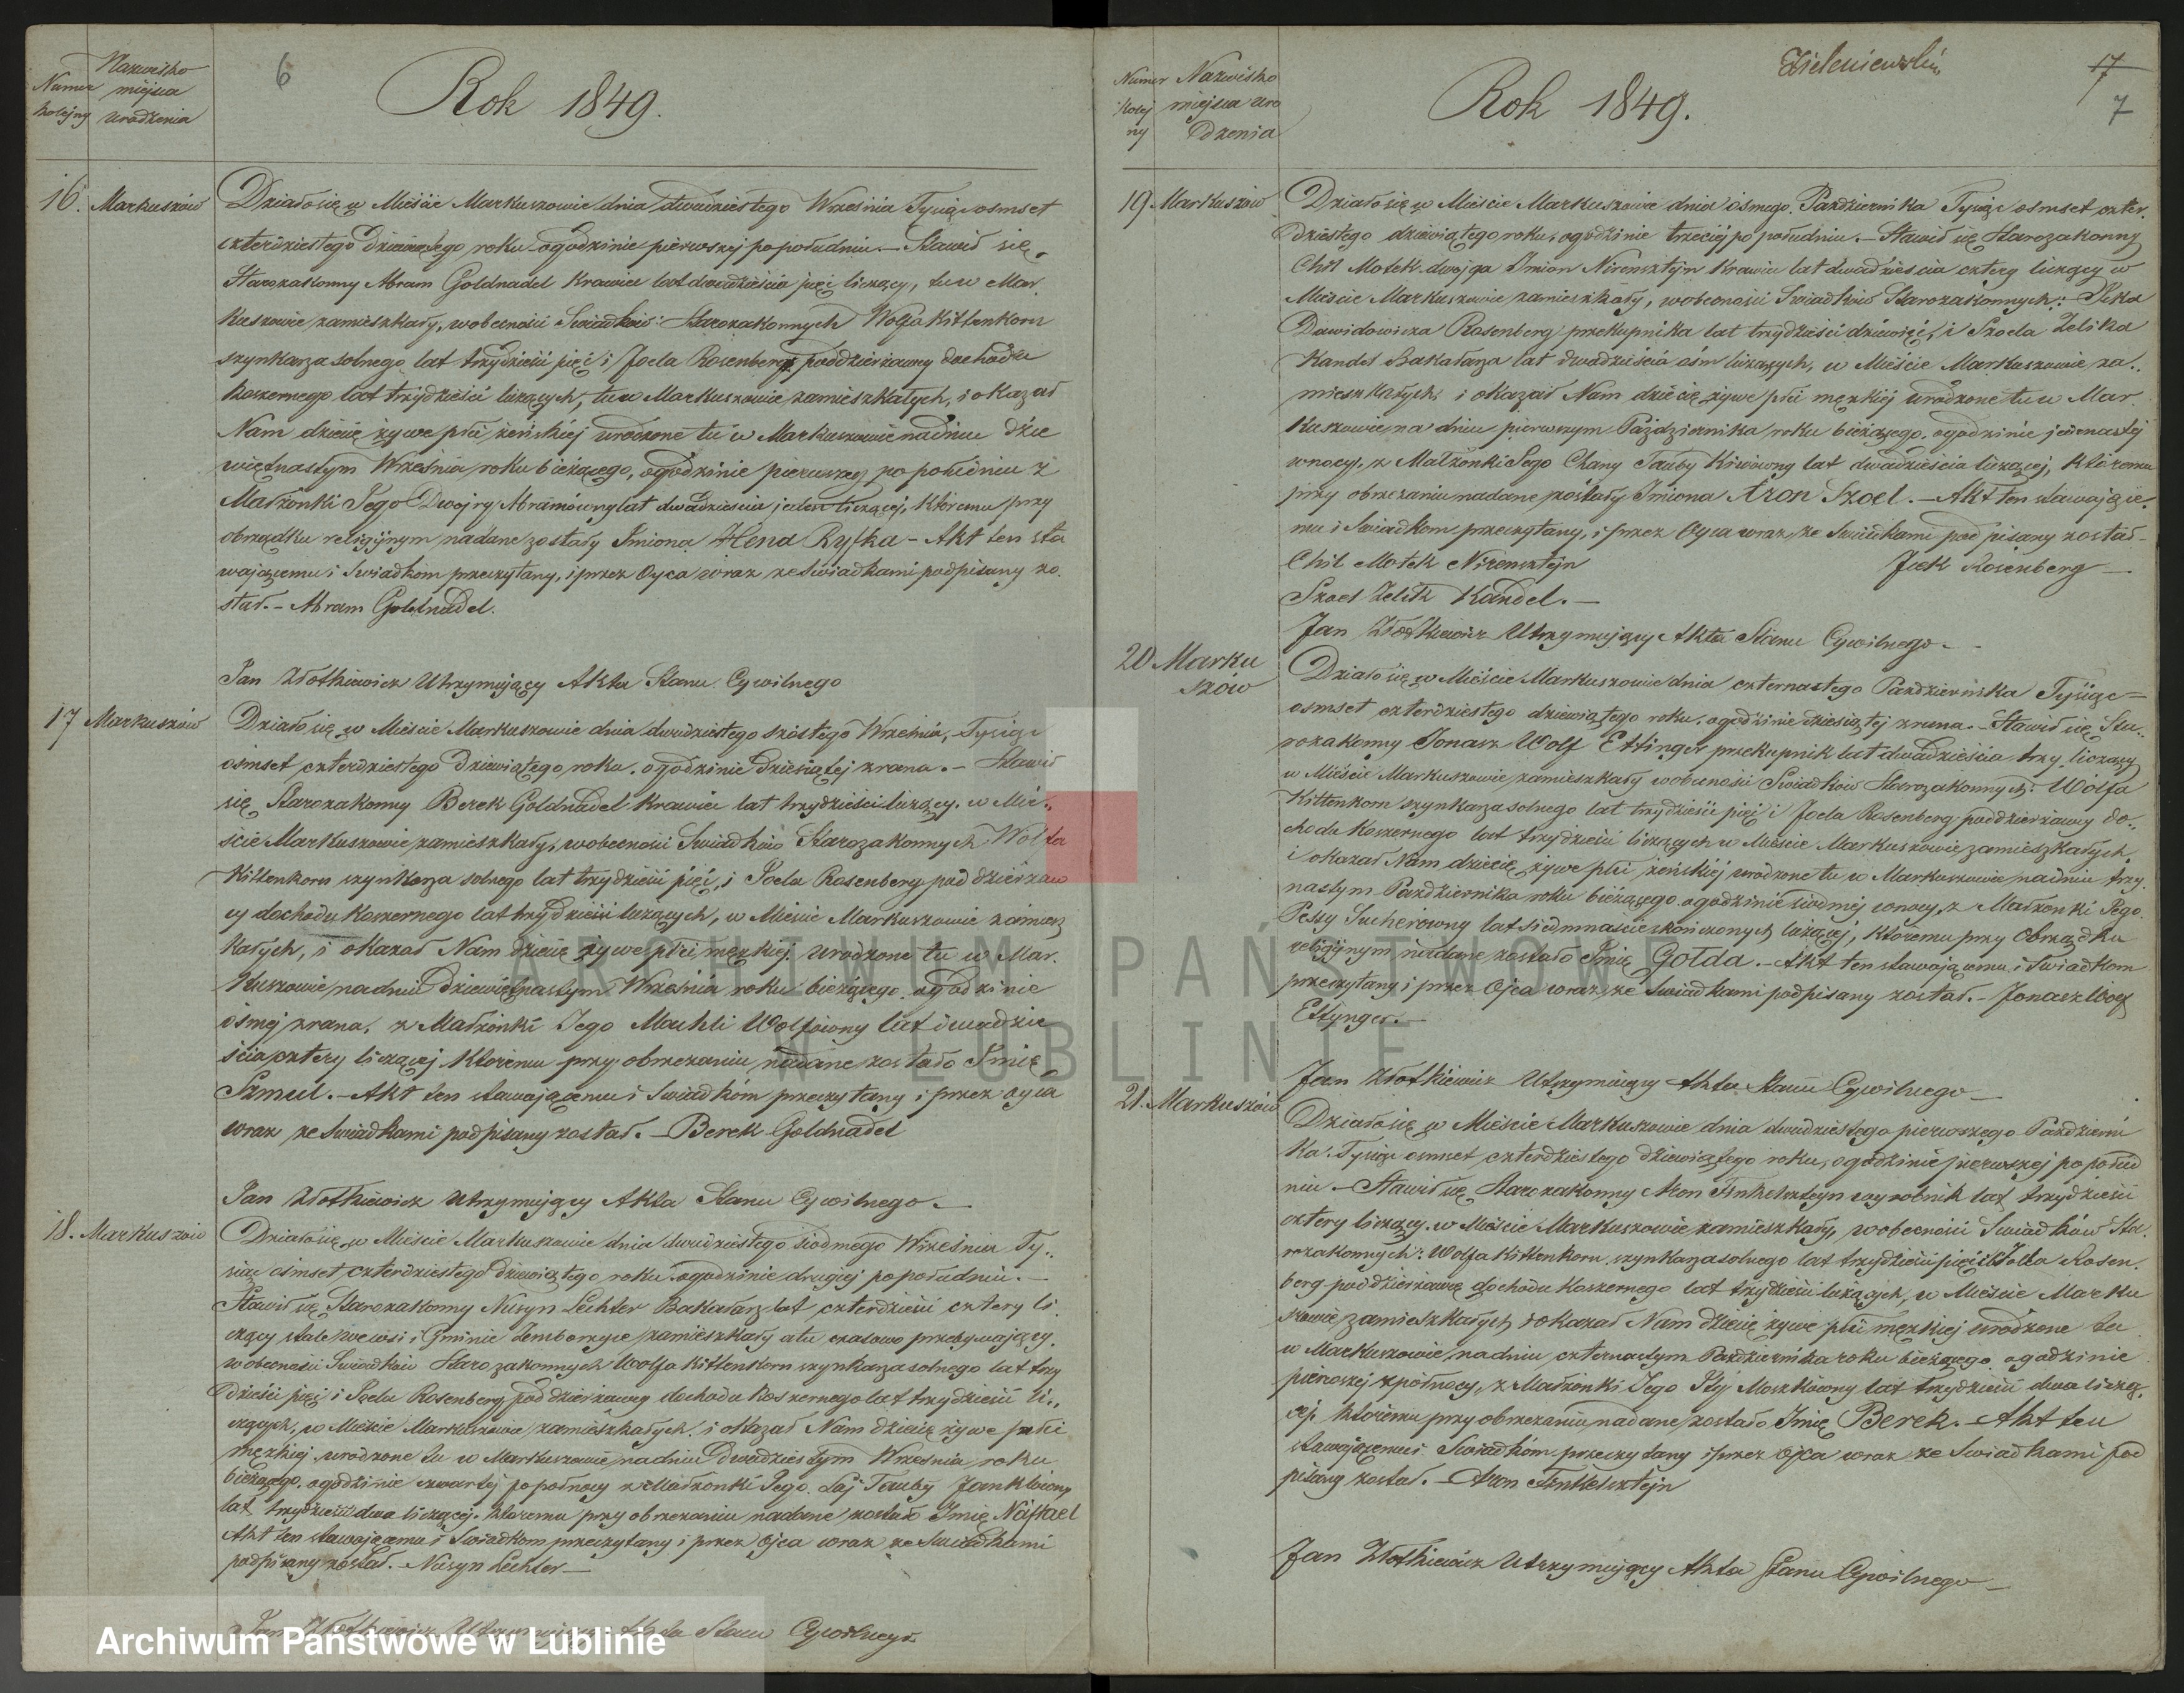 Numer kolejny
Nazwisko miejsca urodzenia
6
Rok 1849.
16. Markuszów
Działo się w Mieście Markuszowie dnia dwudziestego Września Tysiąc osmset
czterdziestego dziewiątego roku o godzinie pierwszej po południu. – Stawił się
Starozakonny Abram Goldnadel Krawiec lat dwadzieścia pięć liczący, tu w Mar
kuszowie zamieszkały, w obecności Świadków Starozakonnych Wolfa Kittenkorn
szynkarza solnego lat trzydzieści pięć i Joela Rosenberg poddzierżawcy dochodu
Koszernego lat trzydzieści liczących, tu w Markuszowie zamieszkałych, i okazał
Nam dziecię żywe płci żeńskiej urodzone tu w Markuszowie na dniu dzie
więtnastym Września roku bieżącego, o godzinie pierwszej po południu z
Małżonki Jego Dwojry Abramówny lat dwadzieścia jeden liczącej, któremu przy
obrządku religijnym nadane zostały Imiona Hena Ryfka – Akt ten sta
wającemu i Świadkom przeczytany, i przez Oyca wraz ze Świadkami podpisany zo
stał. – Abram Goldnadel.
Jan Złotkiewicz Utrzymujący Akta Stanu Cywilnego
17 Markuszów
Działo się w Mieście Markuszowie dnia dwudziestego szóstego Września, Tysiąc
osmset czterdziestego dziewiątego roku. o godzinie dziesiątej zrana. – Stawił
się Starozakonny Berek Goldnadel Krawiec lat trzydzieści liczący. w Mie„
ście Markuszowie zamieszkały, w obecności Świadków Starozakonnych Wolfa
Kittenkorn szynkarza solnego lat trzydzieści pięć, i Joela Rosenberg poddzierżaw
cy dochodu Koszernego lat trzydzieści liczących, w Mieście Markuszowie zamiesz
kałych, i okazał Nam dziecię żywe płci męzkiej. urodzone tu w Mar.
kuszowie na dniu dziewiętnastym Września roku bieżącego o godzinie
osmej zrana, z Małżonki Jego Machli Wolfowny lat dwadzie
ścia cztery liczącej któremu przy obrzezaniu nadane zostało Imię
Samuel. – Akt ten stawającemu i Świadkóm przeczytany i przez oyca
wraz ze Świadkami podpisany został. – Berek Goldnadel
Jan Złotkiewicz Utrzymujący Akta Stanu Cywilnego –
18. Markuszów
Działo się w Mieście Markuszowie dnia dwudziestego siodmego Września Ty„
siąc osmset czterdziestego dziewiątego roku o godzinie drugiej po południu. –
Stawił się Starozakonny Nusyn Lechter Bakałarz lat czterdzieści cztery li
czący stale we wsi i Gminie Zemborzyce zamieszkały a tu czasowo przebywający.
w obecności Świadków Starozakonnych Wolfa Kittenkorn szynkarza solnego lat trzy
dzieści pięć i Joela Rosenberg poddzierżawcy dochodu Koszernego lat trzydzieści li„
czących, w Mieście Markuszowie zamieszkałych i okazał Nam dziecię żywe płci
męzkiej urodzone tu w Markuszowie na dniu Dwudziestym Września roku
bieżącego. o godzinie czwartej po północy z Małżonki Jego Łaj Tauby Jankłowny
lat trzydzieści dwa liczącej. któremu przy obrzezaniu nadane zostało Imię Naftael
Akt ten stawającemu i Świadkom przeczytany i przez Ojca wraz ze Świadkami
podpisany został. – Nusyn Lechter –
Jan Złotkiewicz Utrzymujący Akta Stanu Cywilnego
Numer kolejny
Nazwisko miejsca urodzenia
Rok 1849.
Zieleniewski
17
7
19. Markuszów
Działo się w Mieście Markuszowie dnia osmego Października Tysiąc osmset czter
dziestego dziewiątego roku, o godzinie trzeciej po południu. – Stawił się Starozakonny
Chil Motek dwojga Imion Nirensztejn Krawiec lat dwadzieścia cztery liczący w
Mieście Markuszowie zamieszkały, w obecności Świadków Starozakonnych: Icka
Dawidowicza Rosenberg przekupnika lat trzydzieści dziewięć, i Szoela Zelika
Kandel Bakałarza lat dwadzieścia osm liczących, w Mieście Markuszowie za„
mieszkałych, i okazał Nam dziecię żywe płci męzkiej urodzone tu w Mar
kuszowie, na dniu pierwszym Października roku bieżącego. o godzinie jedenastej
w nocy, z Małżonki Jego Chany Tauby Kiwówny lat dwadzieścia liczącej, któremu
przy obrzezaniu nadane zostały Imiona Aron Szoel. – Akt ten stawające„
mu i Świadkom przeczytany, i przez Oyca wraz ze Świadkami podpisany został –
Chil Motek Nirensztejn
Jcek Rosenberg –
Szoel Zelik Kandel. –
Jan Złotkiewicz Utrzymujący Akta Stanu Cywilnego –
20 Marku
szów
Działo się w Mieście Markuszowie dnia czternastego Października Tysiąc =
osmset czterdziestego dziewiątego roku, o godzinie dziesiątej zrana. – Stawił się Sta„
rozakonny Jonasz Wolf Ettinger przekupnik lat dwadzieścia trzy liczący
w Mieście Markuszowie zamieszkały w obecności Świadków Starozakonnych: Wolfa
Kittenkorn szynkarza solnego lat trzydzieści pięć i Joela Rosenberg poddzierżawcy do„
chodu Koszernego lat trzydzieści liczących w Mieście Markuszowie zamieszkałych.
i okazał Nam dziecię żywe płci żeńskiej urodzone tu w Markuszowie na dniu trzy
nastym Października roku bieżącego o godzinie siodmej w nocy, z Małżonki Jego
Pesy Sucherowny lat siedmnaście skończonych liczącej, któremu przy Obrządku
religijnym nadane zostało Imię Gołda. – Akt ten stawającemu i Świadkom
przeczytany i przez Ojca wraz ze Świadkami podpisany został. – Jonasz Wolf
Ettynger. –
Jan Złotkiewicz Utrzymujący Akta Stanu Cywilnego –
21. Markuszów
Działo się w Mieście Markuszowie dnia dwudziestego pierwszego Październi
ka Tysiąc osmset czterdziestego dziewiątego roku, o godzinie pierwszej po połud
niu – Stawił się Starozakonny Aron Finkelsztejn wyrobnik lat trzydzieści
cztery liczący w Mieście Markuszowie zamieszkały, w obecności Świadków Sta.
rozakonnych: Wolfa Kittenkorn szynkarza solnego lat trzydzieści pięć i Joela Rosen.
berg poddzierżawcę dochodu Koszernego lat trzydzieści liczących, w Mieście Marku
szowie zamieszkałych i okazał Nam dziecię żywe płci męzkiej urodzone tu
w Markuszowie na dniu czternastym Października roku bieżącego o godzinie
pierwszej z północy, z Małżonki Jego Moszkówny lat trzydzieści dwa liczą„
cej. któremu przy obrzezaniu nadane zostało Imię Berek. – Akt ten
stawającemu i Świadkóm przeczytany i przez Ojca wraz ze Świadkami pod
pisany został. – Aron Finkelsztejn
Jan Złotkiewicz Utrzymujący Akta Stanu Cywilnego –
ARCHIWUM PAŃSTWOWE
W LUBLINIE
Archiwum Państwowe w Lublinie